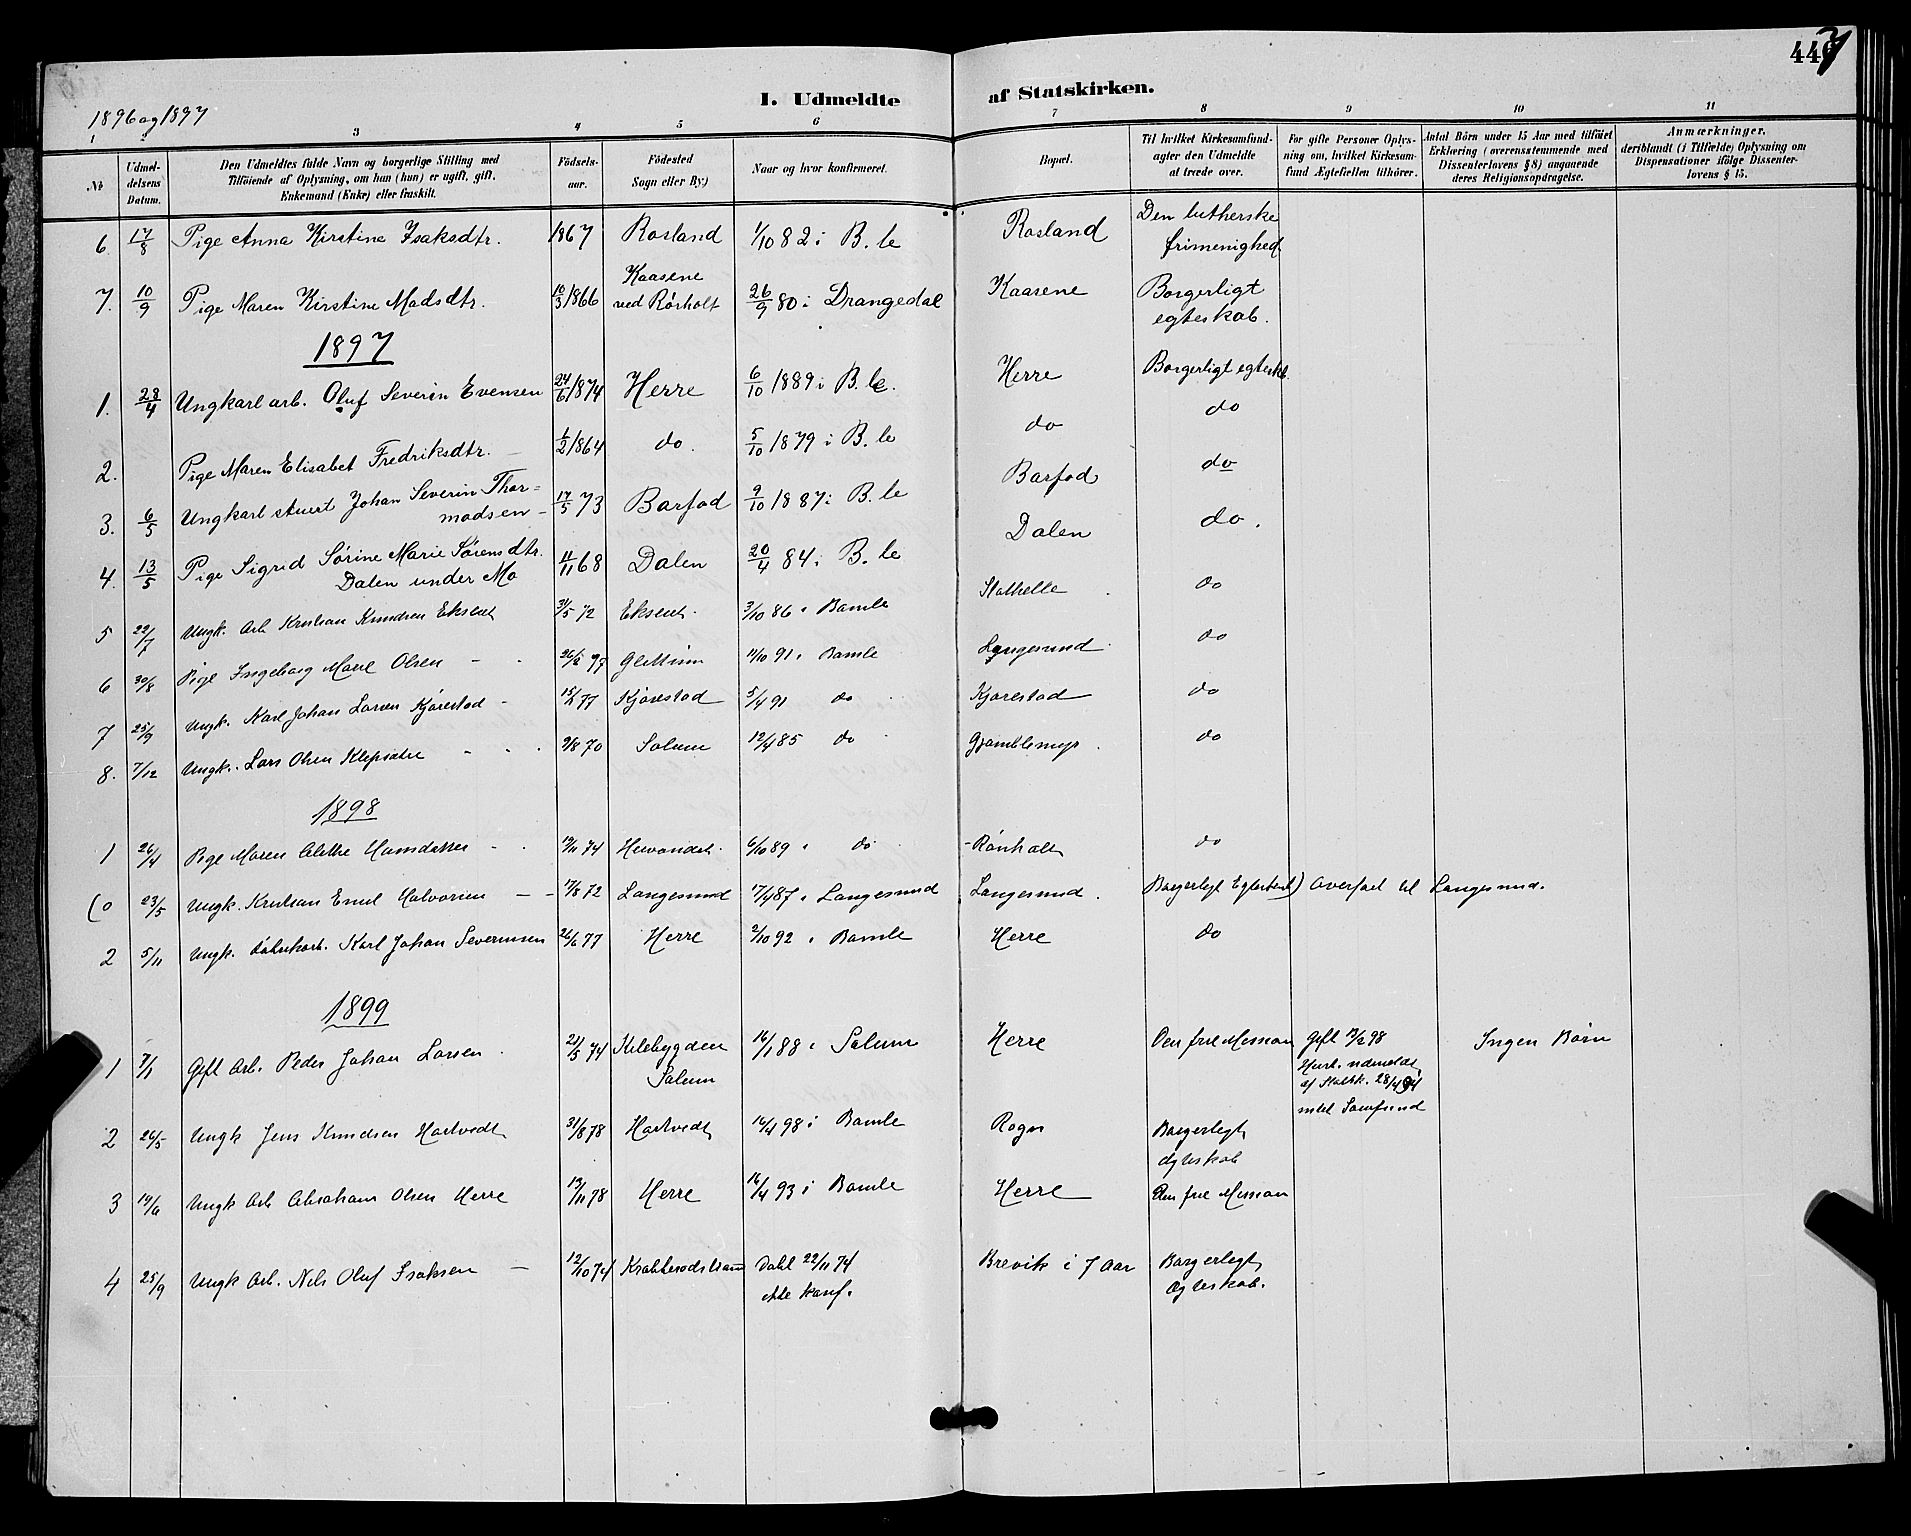 447
1896 og 1897
I. Udmeldte af Statskirken.
1 2 3 4 5 6 7 8 9 10 11
No
Udmel-
delsens
Datum.
Den Udmeldtes fulde Navn og borgerlige Stilling med
Tilföiende af Oplysning, om han (hun) er ugift, gift,
Enkemand (Enke) eller fraskilt.
Födsels-
aar.
Födested
Sogn eller By.)
Naar og hvor konfirmeret.
Bopæl.
Til hvilket Kirkesamfund-
agter den Udmeldte
at træde over.
For gifte Personer Oplys-
ning om, hvilket Kirkesam-
fund Ægtefællen tilhörer.
Antal Börn under 15 Aar med tilföiet
Erklæring (overensstemmende med
Dissenterlovens § 8) angaaende
deres Religionsopdragelse.
Anmærkninger,
deriblandt (i Tilfælde) Oplysning om
Dispensationer ifölge Dissenter-
lovens § 15.
6. 17/8 Pige Anna Kirstine Isaksdtr. 1867 Rosland 1/10 82 i B.le Rosland Den lutherske
frimenighed
7. 10/9 Pige Maren Kirstine Madsdtr. 10/3 1866 Kaasene
ved Rörholt 26/9 80 i Drangedal Kaasene Borgerligt
egteskab.
1897
1. 28/4 Ungkarl arb. Oluf Severin Evensen 24/6 1874 Herre 6/10 1889 i B.le. Herre Borgerligt egteskb.
2. Pige Maren Elisabet Fredriksdtr. 1/2 1864 do. 5/10 1879 i B.le do do
3. 6/5 Ungkarl stuert Johan Severin Thor=
modsen - 17/5 73 Barfod 9/10 1887 i B.le Barfod do
4. 13/5 Pige Sigrid Sörine Marie Sörensdtr.
Dalen under Mo 11/11 68 Dalen 20/4 84 i B.le Dalen do.
5 22/7 Ungk. Arb Kristian Knudsen Eksent 31/5 72 Eksent. 3/10 86 i Bamle Stathelle do
6 30/8 Pige Ingeborg Marie Olsen - 26/2 77 11/10 91 i Bamle Langesund do
7 25/9 Ungk. Karl Johan Larsen Kjörestad - 77 Kjörestad 5/4 91 do Kjörestad do
8. 7/12 Ungk. Lars Olsen Klepsæter - 9/8 70 Solum 12/4 85 do Gjømblemyr. do
1898
1 26/4 Pige Maren Alethe - 19/11 74 6/10 89 i do Rönholt do
(o 23/5 Ungk. Kristian Emil Halvorsen - - 17/8 72 Langesund 17/4 87 i Langesund Langesund. Borgerligt Egteskab) Overfört til Langesund.
2 5/11 Ungk. Karl Johan Severinsen 26/6 77 Herre 2/10 92 i Bamle Herre do
1899
1 7/1 Gift Arb. Peder Johan Larsen 21/5 74 Kilebygden
Solum 16/1 88 i Solum Herre Den frie Mission Gift 98
Hust. udmeldt
af Statsk. 28/4 94
intet Samfund Ingen Børn
2 26/5 Ungk Jens Knudsen Hartvedt 31/8 78 Hartvedt 16/4 98 i Bamle Rogn Borgerligt
Ægteskab
3 19/6 Ungk Arb Abraham Olsen Herre 13/11 78 Herre 16/4 93 i Bamle Herre Den frie Mission
4 25/9 Ungk Arb. Nils Oluf Isaksen - 12/10 74 Krabberødstrand Døbt 22/11 74
ikke konf. Brevik i 7 Aar Borgerligt
Ægteskab.